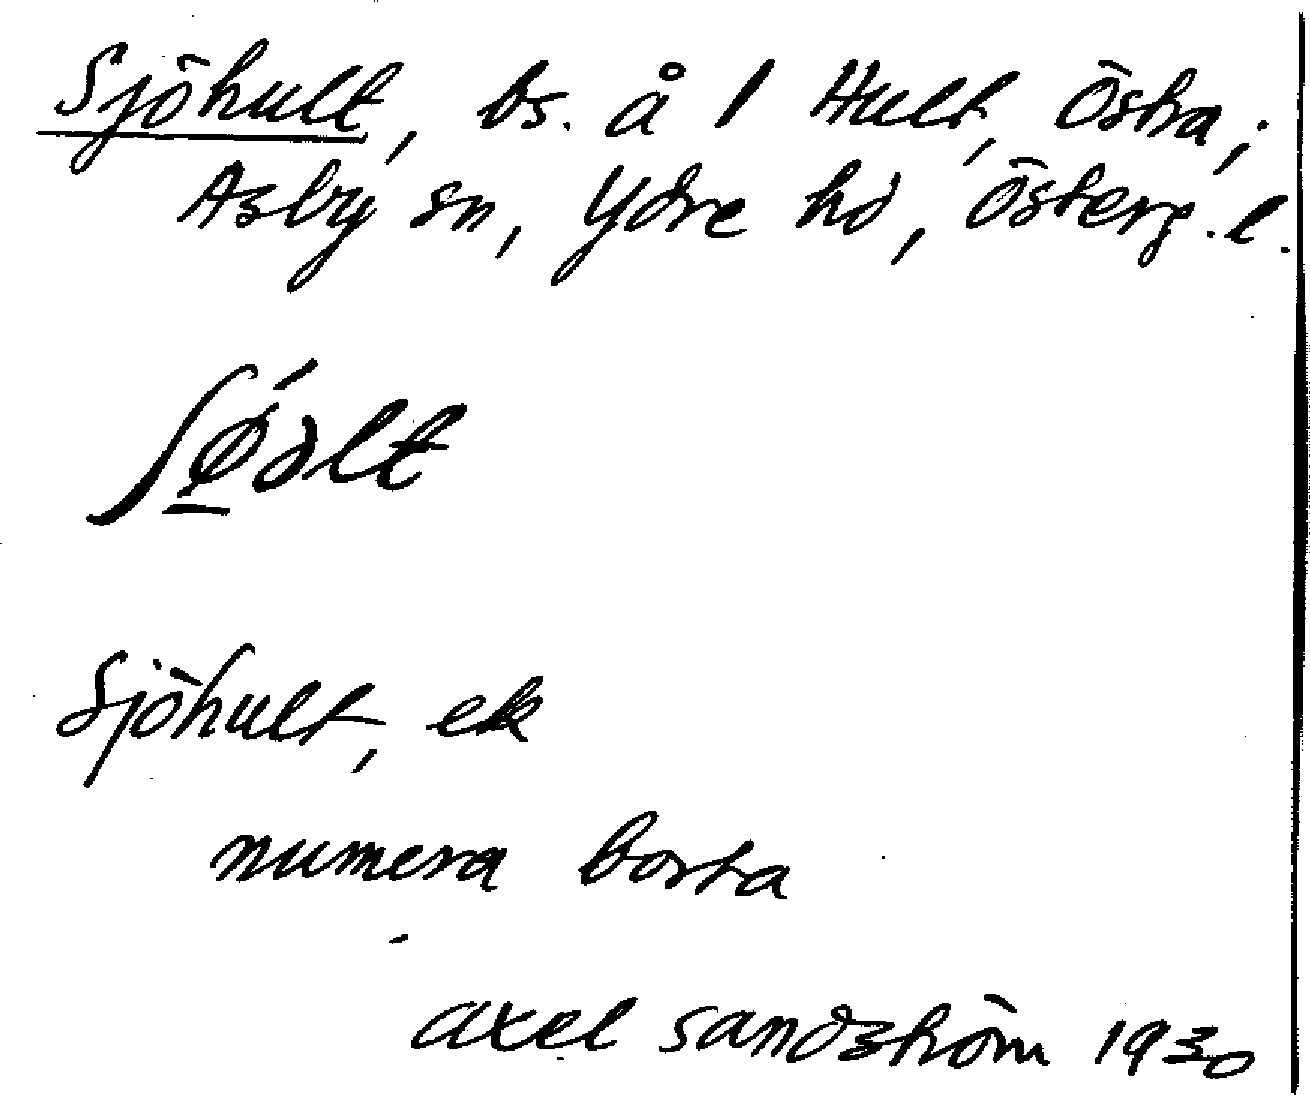 Sjöhult, bs. å 1 Hult, Östra;
Asby sn, Ydre hd, Österg.l.
ʃǿ̱ǝlt
Sjöhult, ek
numera borta
Axel Sandström 1930